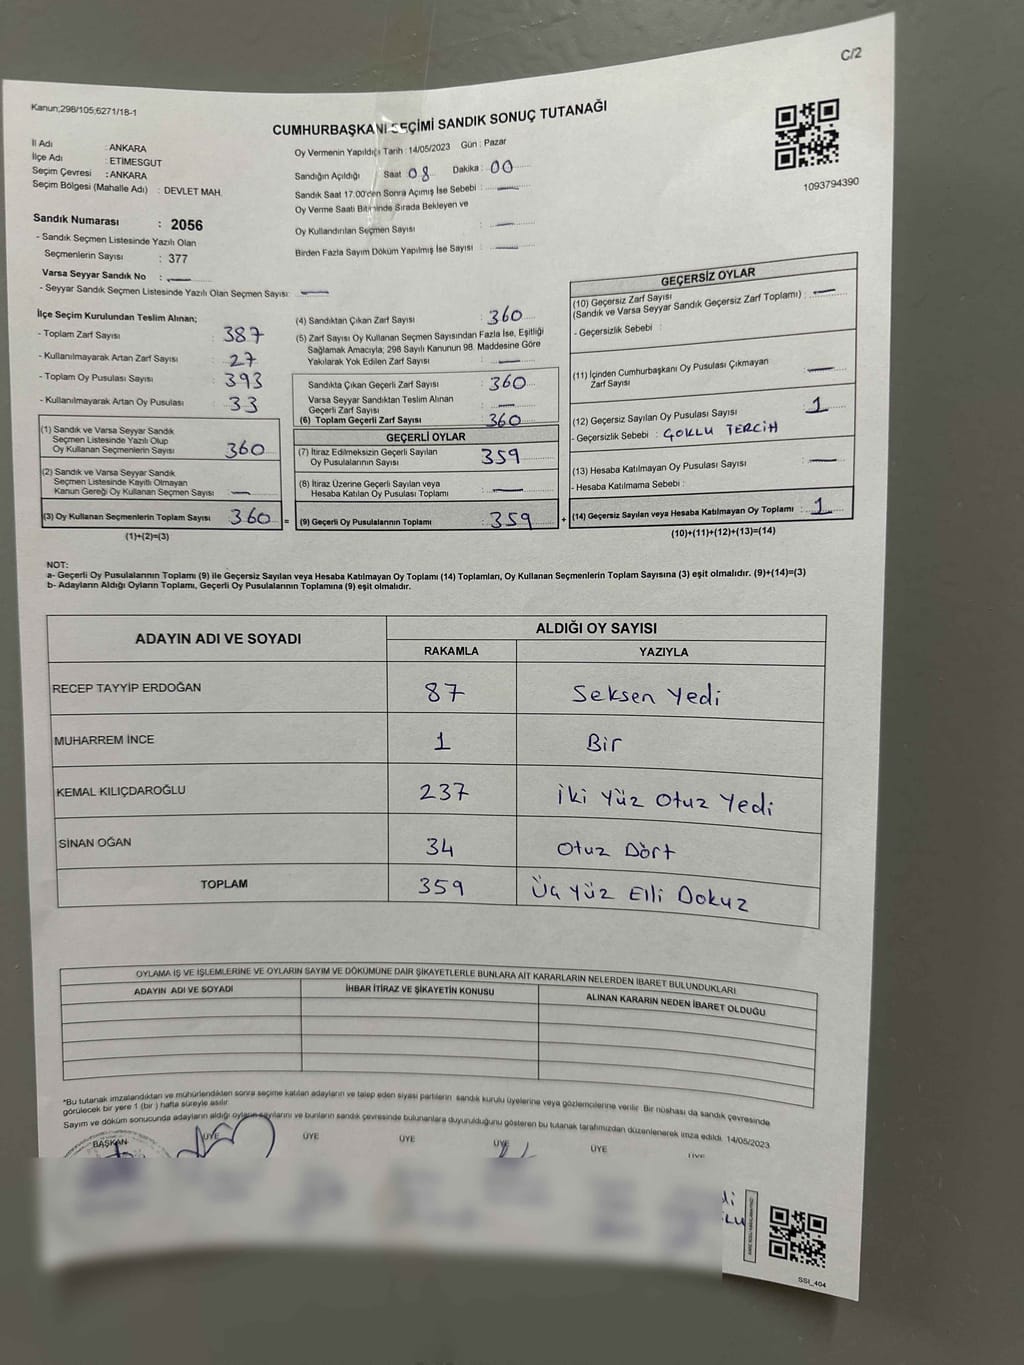 C/2
Kanun;298/105;6271/18-1
CUMHURBAŞKANI SEÇİMİ SANDIK SONUÇ TUTANAĞI
İl Adı : ANKARA
İlçe Adı : ETİMESGUT
Seçim Çevresi : ANKARA
Seçim Bölgesi (Mahalle Adı) : DEVLET MAH.
Sandık Numarası : 2056
- Sandık Seçmen Listesinde Yazılı Olan
Seçmenlerin Sayısı : 377
Varsa Seyyar Sandık No : —
- Seyyar Sandık Seçmen Listesinde Yazılı Olan Seçmen Sayısı: —
Oy Vermenin Yapıldığı Tarih : 14/05/2023 Gün : Pazar
Sandığın Açıldığı Saat 08 Dakika : 00
Sandık Saat 17:00'den Sonra Açımış İse Sebebi : —
Oy Verme Saati Bitiminde Sırada Bekleyen ve
Oy Kullandırılan Seçmen Sayısı : —
Birden Fazla Sayım Döküm Yapılmış İse Sayısı : —
1093794390
İlçe Seçim Kurulundan Teslim Alınan;
- Toplam Zarf Sayısı : 387
- Kullanılmayarak Artan Zarf Sayısı : 27
- Toplam Oy Pusulası Sayısı : 393
- Kullanılmayarak Artan Oy Pusulası : 33
(1) Sandık ve Varsa Seyyar Sandık
Seçmen Listesinde Yazılı Olup
Oy Kullanan Seçmenlerin Sayısı : 360
(2) Sandık ve Varsa Seyyar Sandık
Seçmen Listesinde Kayıtlı Olmayan
Kanun Gereği Oy Kullanan Seçmen Sayısı : —
(3) Oy Kullanan Seçmenlerin Toplam Sayısı : 360 =
(1)+(2)=(3)
(4) Sandıktan Çıkan Zarf Sayısı : 360
(5) Zarf Sayısı Oy Kullanan Seçmen Sayısından Fazla İse, Eşitliği
Sağlamak Amacıyla; 298 Sayılı Kanunun 98. Maddesine Göre
Yakılarak Yok Edilen Zarf Sayısı : —
Sandıkta Çıkan Geçerli Zarf Sayısı : 360
Varsa Seyyar Sandıktan Teslim Alınan
Geçerli Zarf Sayısı : —
(6) Toplam Geçerli Zarf Sayısı : 360
GEÇERLİ OYLAR
(7) İtiraz Edilmeksizin Geçerli Sayılan
Oy Pusulalarının Sayısı : 359
(8) İtiraz Üzerine Geçerli Sayılan veya
Hesaba Katılan Oy Pusulası Toplamı : —
(9) Geçerli Oy Pusulalarının Toplamı : 359 +
GEÇERSİZ OYLAR
(10) Geçersiz Zarf Sayısı
(Sandık ve Varsa Seyyar Sandık Geçersiz Zarf Toplamı) : —
- Geçersizlik Sebebi :
(11) İçinden Cumhurbaşkanı Oy Pusulası Çıkmayan
Zarf Sayısı : —
(12) Geçersiz Sayılan Oy Pusulası Sayısı : 1
- Geçersizlik Sebebi : ÇOKLU TERCİH
(13) Hesaba Katılmayan Oy Pusulası Sayısı : —
- Hesaba Katılmama Sebebi :
(14) Geçersiz Sayılan veya Hesaba Katılmayan Oy Toplamı : 1
(10)+(11)+(12)+(13)=(14)
NOT:
a- Geçerli Oy Pusulalarının Toplamı (9) ile Geçersiz Sayılan veya Hesaba Katılmayan Oy Toplamı (14) Toplamları, Oy Kullanan Seçmenlerin Toplam Sayısına (3) eşit olmalıdır. (9)+(14)=(3)
b- Adayların Aldığı Oyların Toplamı, Geçerli Oy Pusulalarının Toplamına (9) eşit olmalıdır.
ADAYIN ADI VE SOYADI ALDIĞI OY SAYISI
RAKAMLA YAZIYLA
RECEP TAYYİP ERDOĞAN 87 Seksen Yedi
MUHARREM İNCE 1 Bir
KEMAL KILIÇDAROĞLU 237 İki Yüz Otuz Yedi
SİNAN OĞAN 34 Otuz Dört
TOPLAM 359 Üç Yüz Elli Dokuz
OYLAMA İŞ VE İŞLEMLERİNE VE OYLARIN SAYIM VE DÖKÜMÜNE DAİR ŞİKAYETLERLE BUNLARA AİT KARARLARIN NELERDEN İBARET BULUNDUKLARI
ADAYIN ADI VE SOYADI İHBAR İTİRAZ VE ŞİKAYETİN KONUSU ALINAN KARARIN NEDEN İBARET OLDUĞU
*Bu tutanak imzalandıktan ve mühürlendikten sonra seçime katılan adayların ve talep eden siyasi partilerin sandık kurulu üyelerine veya gözlemcilerine verilir. Bir nüshası da sandık çevresinde
görülecek bir yere 1 (bir ) hafta süreyle asılır.
Sayım ve döküm sonucunda adayların aldığı oyların sayılarını ve bunların sandık çevresinde bulunanlara duyurulduğunu gösteren bu tutanak tarafımızdan düzenlenerek imza edildi. 14/05/2023
BAŞKAN ÜYE ÜYE ÜYE ÜYE ÜYE ÜYE
SSİ_404